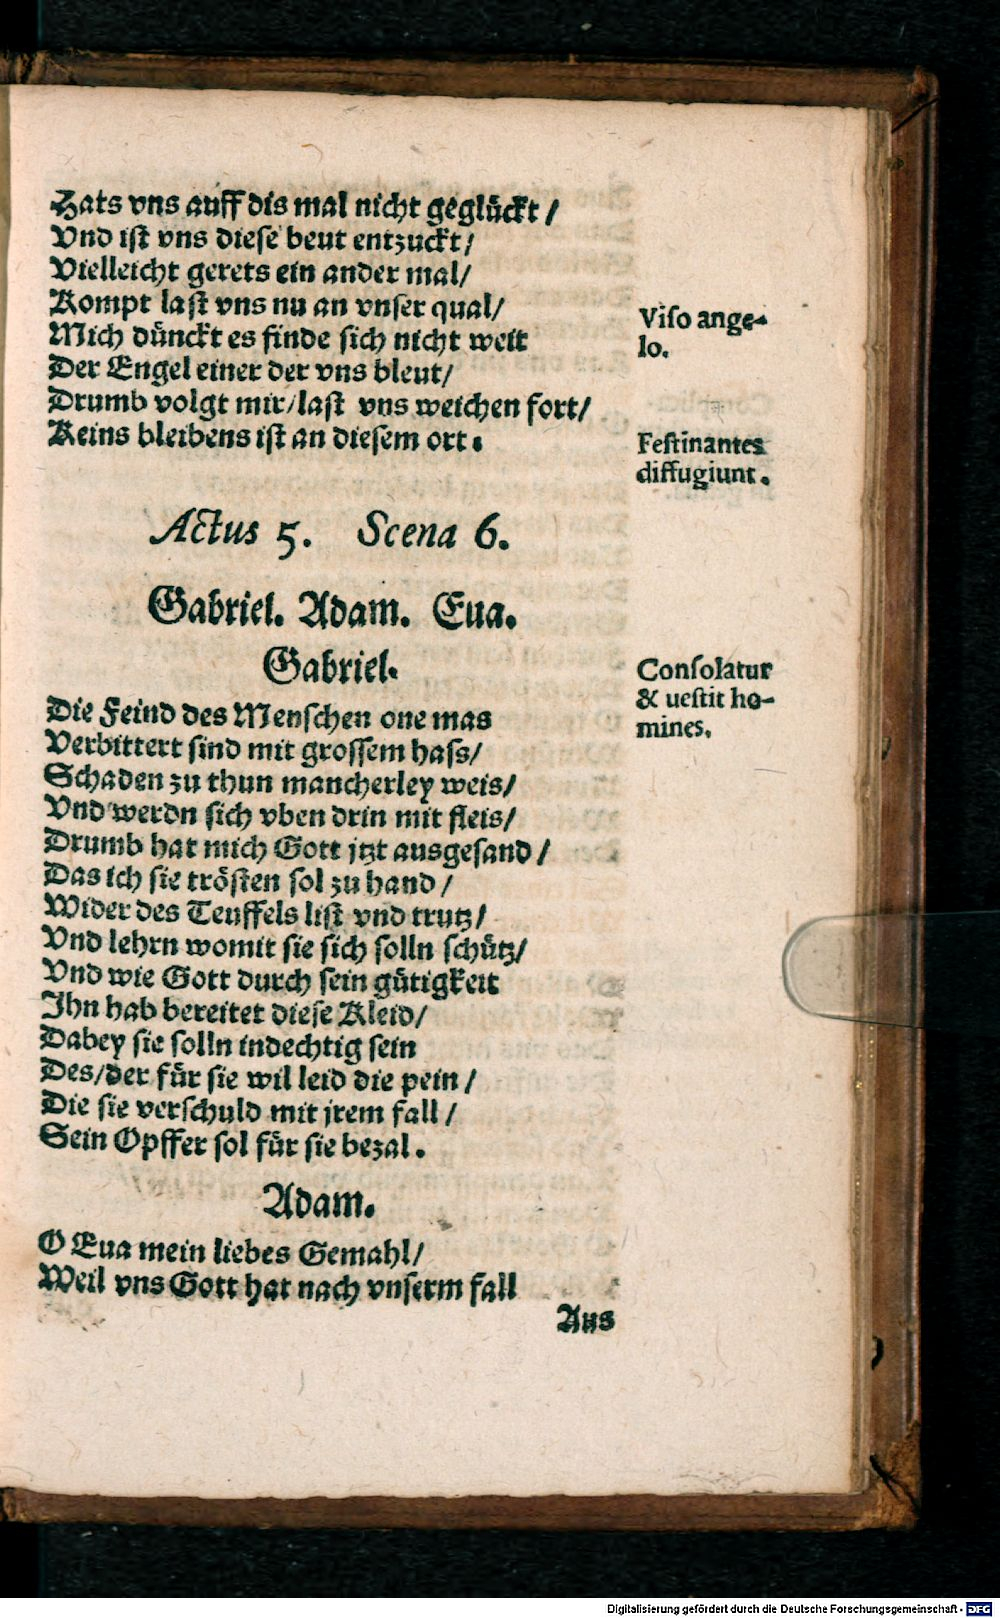 Hats vns auff dis mal nicht geglückt /
Vnd ist vns diese beut entzuckt /
Vielleicht gerets ein ander mal /
Kompt last vns nu an vnser qual /
Mich dünckt es finde sich nicht weit
Der Engel einer der vns bleut /
Drumb volgt mir / last vns weichen fort /
Keins bleibens ist an diesem ort.
Viso ange-
lo.
Festinantes
diffugiunt.
Actus 5. Scena 6.
Gabriel. Adam. Eua.
Gabriel.
Consolatur
& uestit ho-
mines.
Die Feind des Menschen one mas
Verbittert sind mit grossem hass /
Schaden zu thun mancherley weis /
Vnd werdn sich vben drin mit fleis /
Drumb hat mich Gott jtzt ausgesand /
Das ich sie trösten sol zu hand /
Wider des Teuffels list vnd trutz /
Vnd lehrn womit sie sich solln schütz /
Vnd wie Gott durch sein gütigkeit
Ihn hab bereitet diese Kleid /
Dabey sie solln indechtig sein
Des / der für sie wil leid die pein /
Die sie verschuld mit jrem fall /
Sein Opffer sol für sie bezal.
Adam.
O Eua mein liebes Gemahl /
Weil vns Gott hat nach vnserm fall
Aus
Digitalisierung gefördert durch die Deutsche Forschungsgemeinschaft - DFG